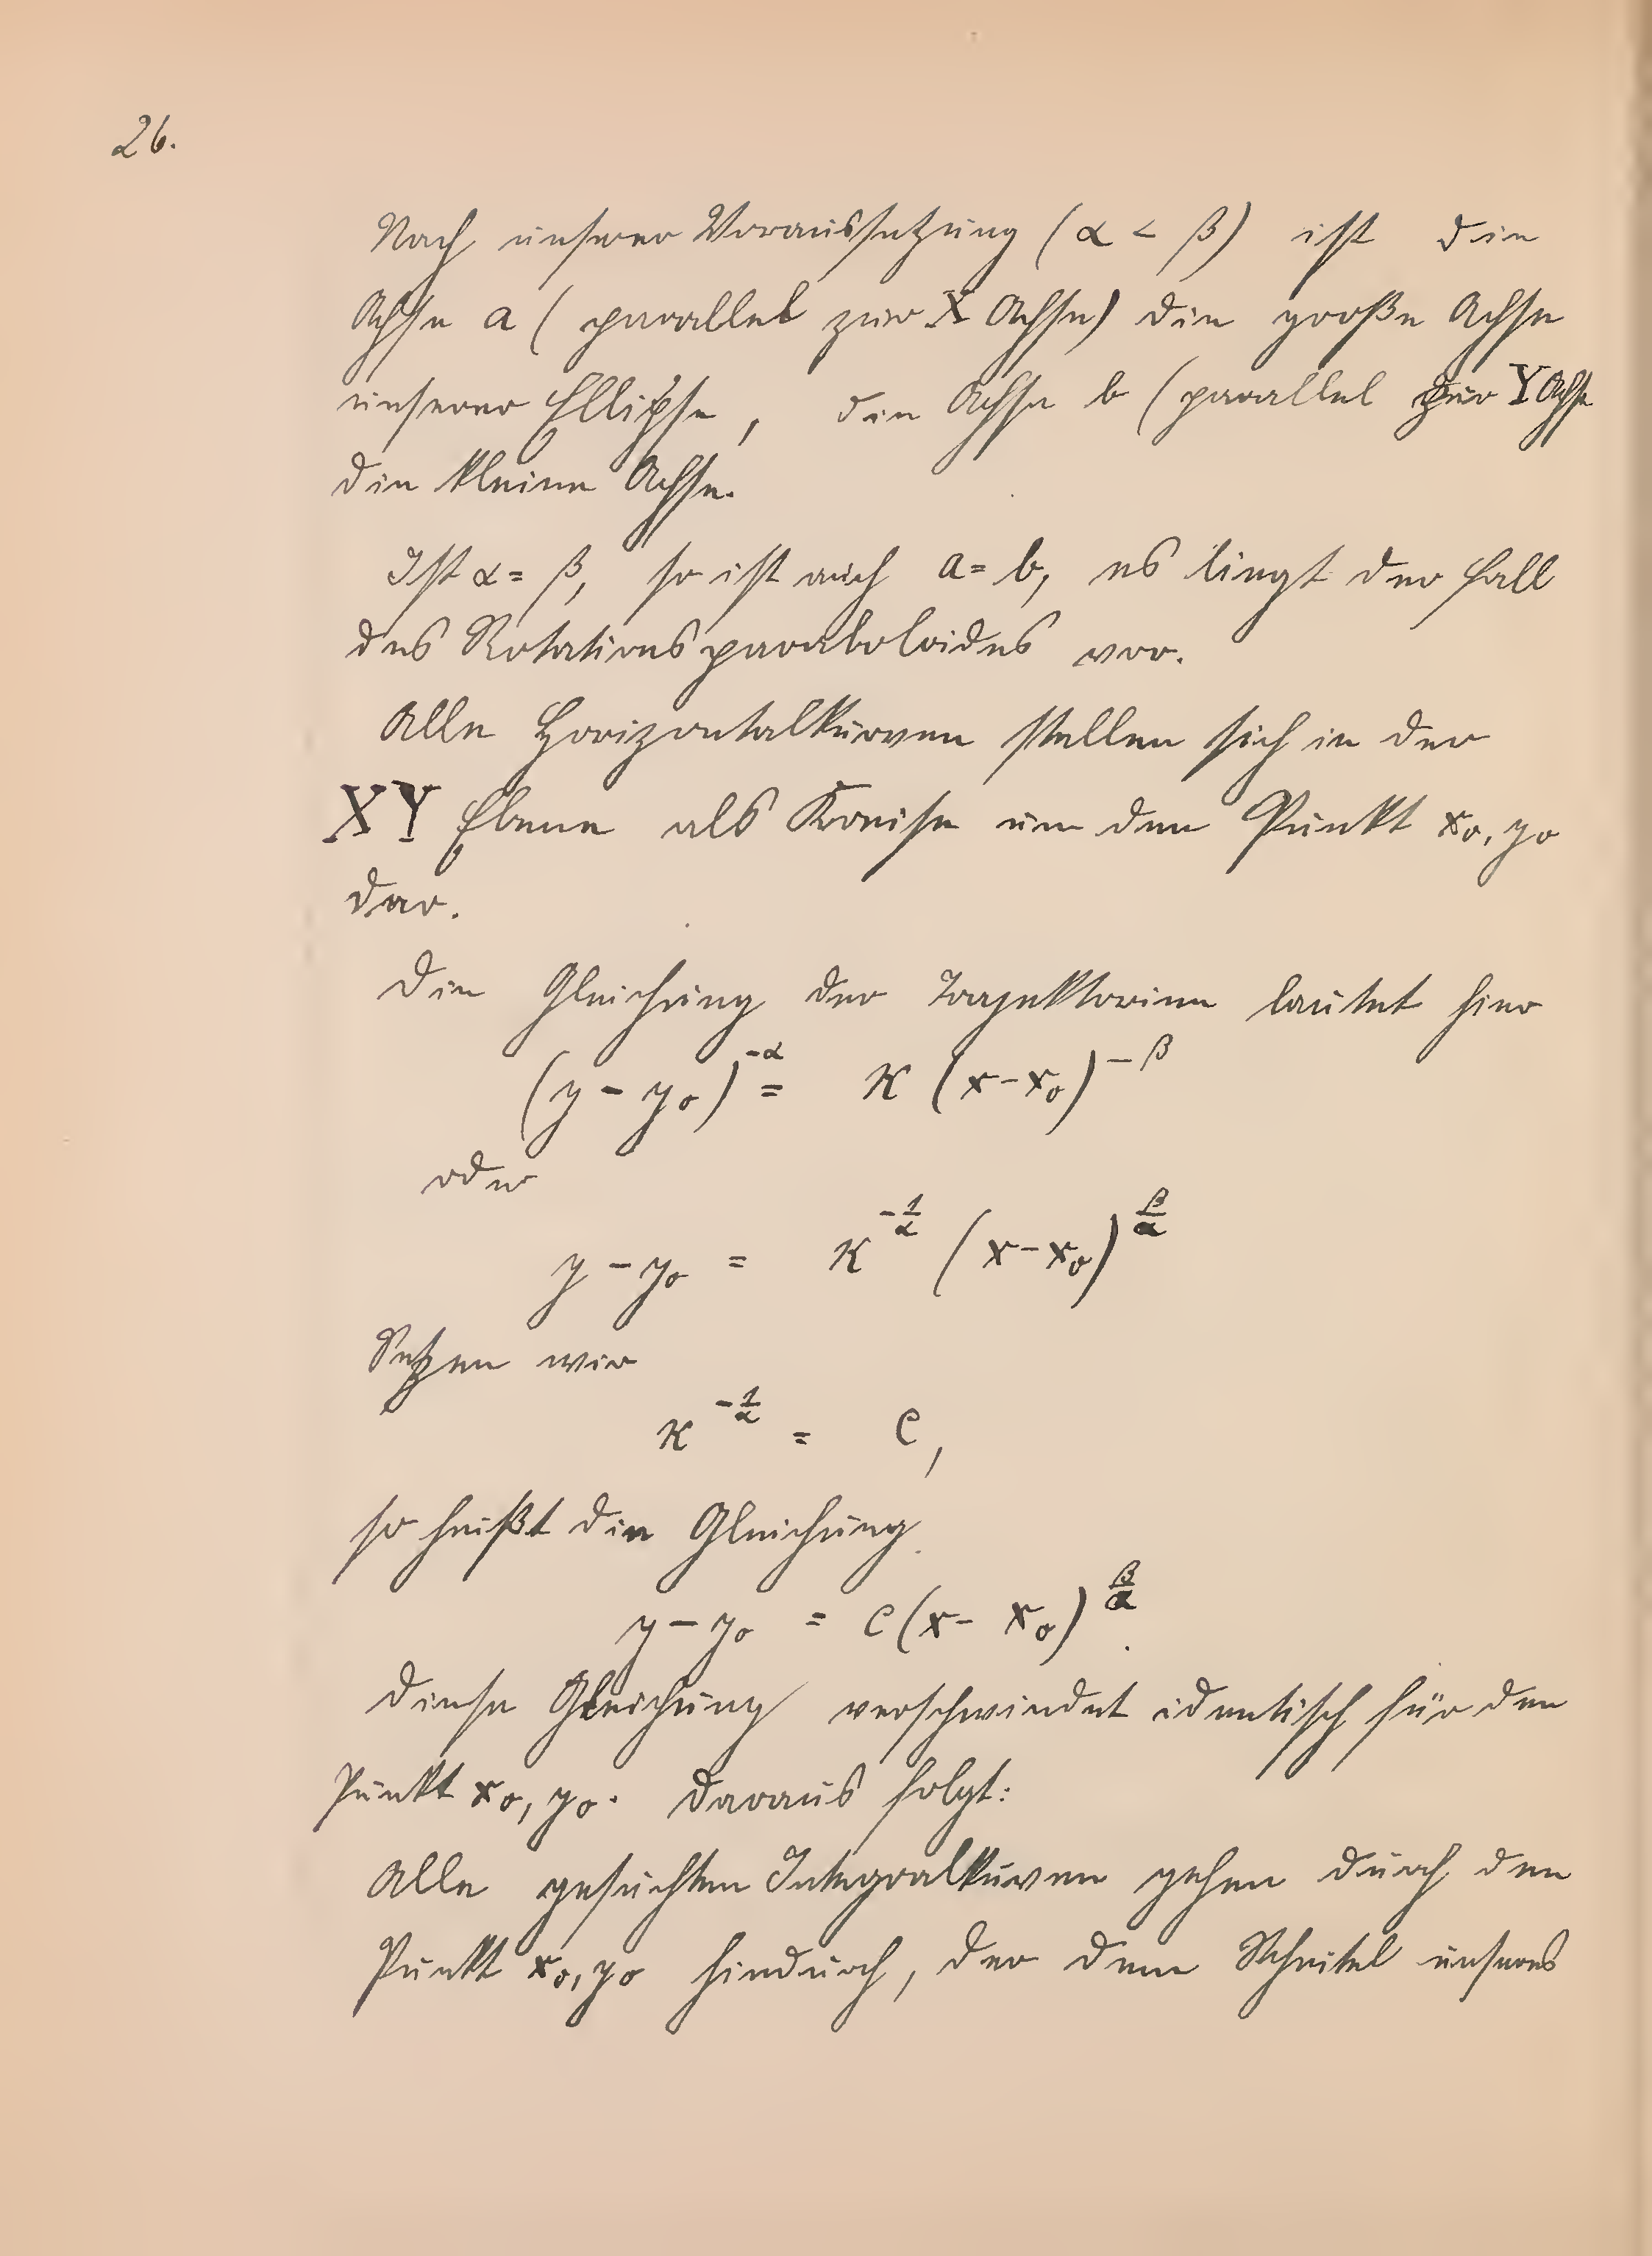 26.
Nach unserer Voraussetzung (α < β) ist die
Achse a (parallel zur X Achse) die große Achse
unserer Ellipse, die Achse b (parallel zur Y Achse
die kleine Achse.
Ist α = β, so ist auch a = b, es liegt der Fall
des Rotationsparaboloides vor.
Alle Horizontalkurven stellen sich in der
XY Ebene als Kreise um den Punkt x₀, y₀
dar.
Die Gleichung der Trajektorien lautet hier
(y - y₀)^{-α} = K (x - x₀)^{-β}
oder
y - y₀ = K^{-1/α} (x - x₀)^{β/α}
Setzen wir
K^{-1/α} = C,
so heißt die Gleichung
y - y₀ = C (x - x₀)^{β/α}.
Diese Gleichung verschwindet identisch für den
Punkt x₀, y₀. Daraus folgt:
Alle gesuchten Integralkurven gehen durch den
Punkt x₀, y₀ hindurch, der dem Scheitel unseres